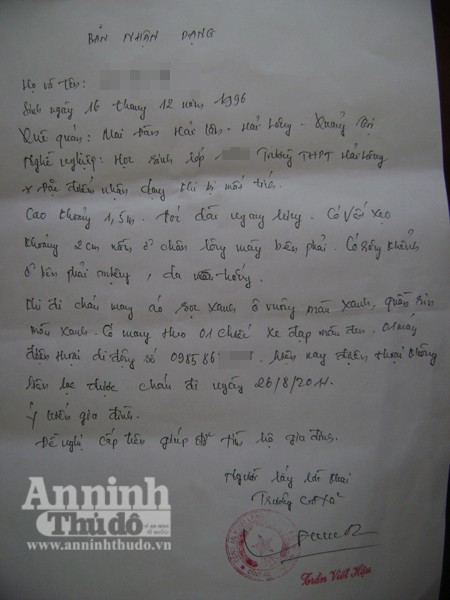 BẢN NHẬN DẠNG
Họ và tên:
Sinh ngày 16 tháng 12 năm 1996
Quê quán: Hải Lăng - Quảng Trị
Nghề nghiệp: Học sinh lớp 1 Trường THPT Hải Lăng
* Đặc điểm nhận dạng khi bị mất tích.
Cao khoảng 1,5m. tóc dài ngang lưng. Có vết sẹo
khoảng 2cm nằm ở chân lông mày bên phải. Có răng khểnh
ở bên phải miệng, da trắng.
Khi đi cháu mang áo sọc xanh ô vuông màu xanh, quần
màu xanh. Có mang theo 01 chiếc xe đạp màu đen. 01 máy
điện thoại di động số 098586 hiện nay điện thoại không
liên lạc được cháu đi ngày 26/8/2011.
Ý kiến gia đình.
Đề nghị cấp trên giúp đỡ tìm hộ gia đình.
Người lấy lời khai
Trưởng CA Xã
Trần Viết Hậu
An ninh
Thủ đô
www.anninhthudo.vn